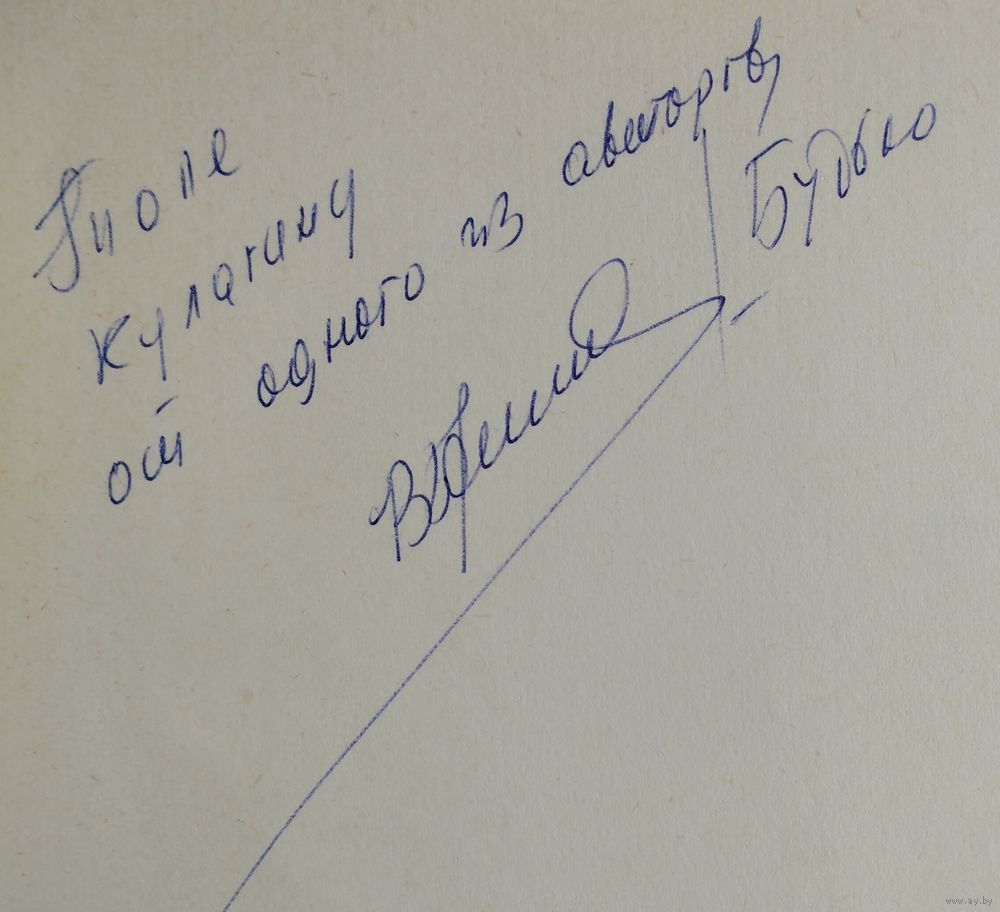 Кулагину
от одного из авторов,
Будько
www.ay.by